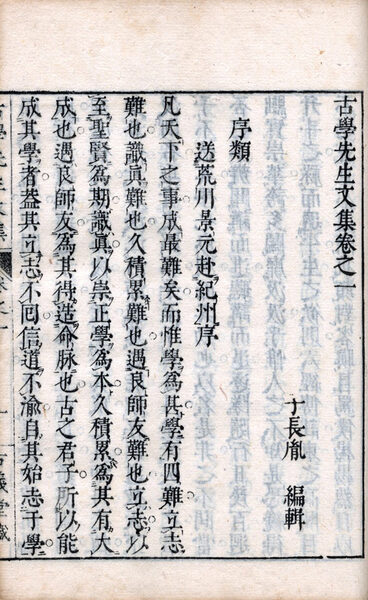 古學先生文集卷之一
長胤 編輯
序類
送荒川景元赴紀州序
凡天下之事成最難矣而惟學爲甚學有四難立志
難也識眞難也久積累難也遇良師友難也立志以
至聖賢爲期識眞以崇正學爲本久積累爲其有大
成也遇良師友爲其得造命脉也古之君子所以能
成其學者盖其立志不回信道不渝自其始志于學